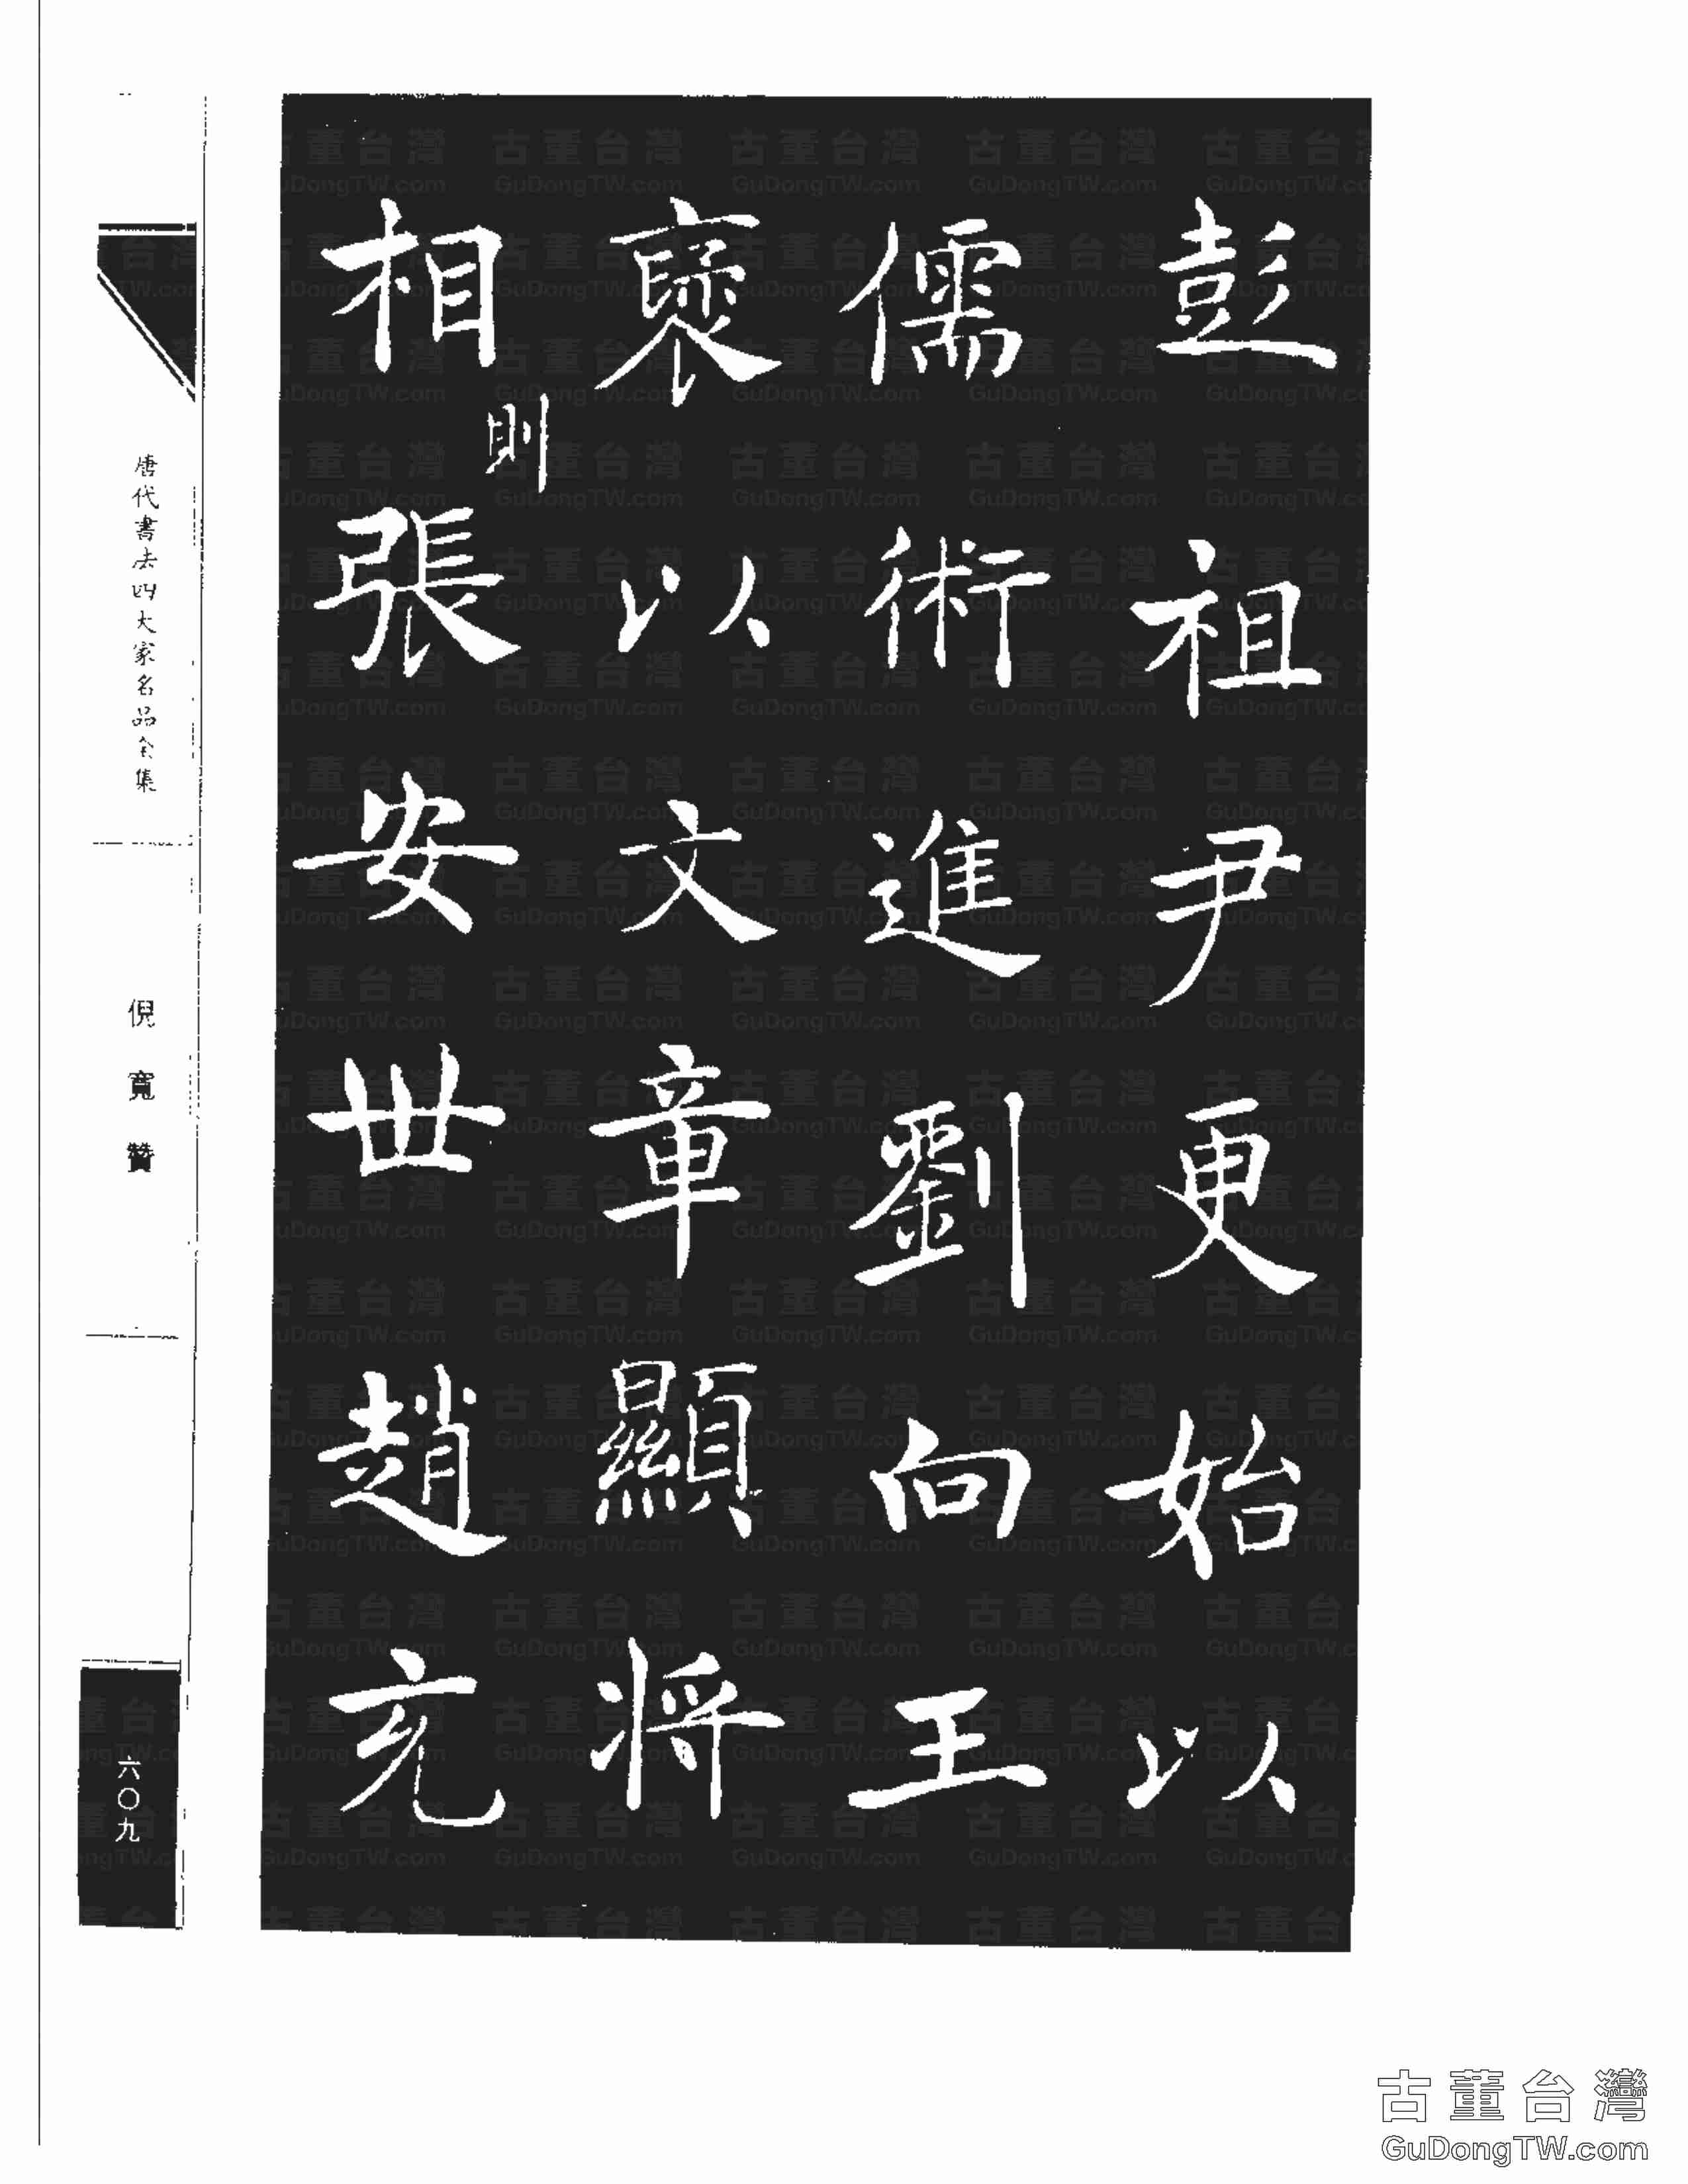 彭祖尹更始以
儒術進劉向王
襃以文章顯將
相則張安世趙充
唐代書法四大家名品全集
倪寬贊
六〇九
古董台灣
GuDongTW.com